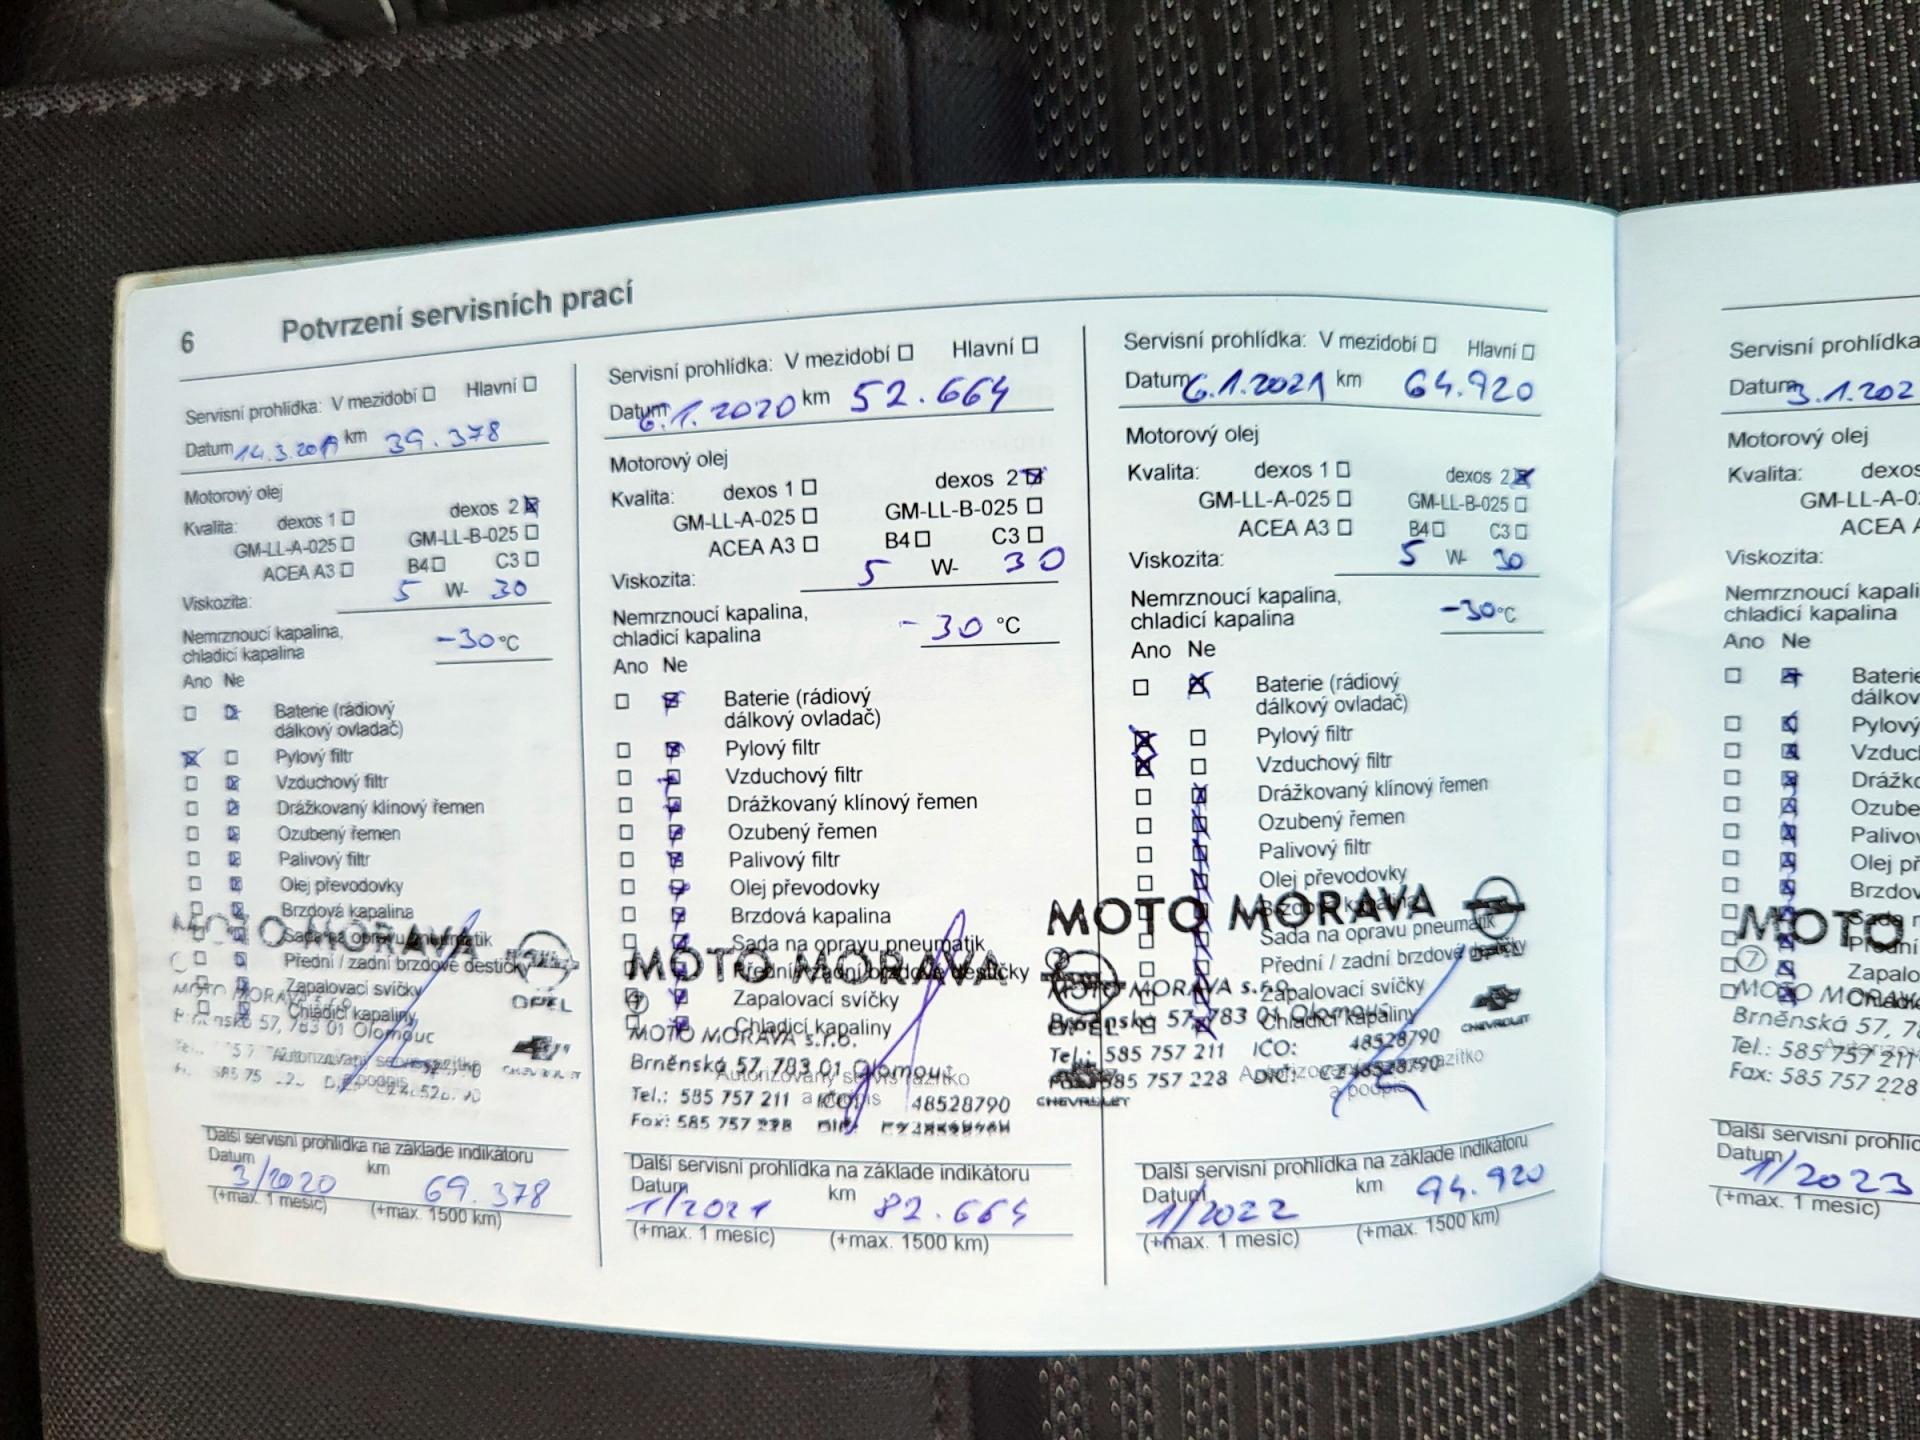 6 Potvrzení servisních prací
Servisní prohlídka: V mezidobí Hlavní
Datum 14.3.2019 km 39.378
Motorový olej
Kvalita: dexos 1 dexos 2
GM-LL-A-025 GM-LL-B-025
ACEA A3 B4 C3
Viskozita: 5 W- 30
Nemrznoucí kapalina,
chladicí kapalina -30 °C
Ano Ne
Baterie (rádiový
dálkový ovladač)
Pylový filtr
Vzduchový filtr
Drážkovaný klínový řemen
Ozubený řemen
Palivový filtr
Olej převodovky
Brzdová kapalina
Sada na opravu pneumatik
Přední / zadní brzdové destičky
Zapalovací svíčky
Chladicí kapaliny
MOTO MORAVA
OPEL
MOTO MORAVA s.r.o.
Brněnská 57, 783 01 Olomouc
CHEVROLET
Autorizovaný servis razítko
a podpis
Další servisní prohlídka na základe indikátoru
Datum km
3/2020 69.378
(+max. 1 mesíc) (+max. 1500 km)
Servisní prohlídka: V mezidobí Hlavní
Datum 6.1.2020 km 52.664
Motorový olej
Kvalita: dexos 1 dexos 2
GM-LL-A-025 GM-LL-B-025
ACEA A3 B4 C3
Viskozita: 5 W- 30
Nemrznoucí kapalina,
chladicí kapalina -30 °C
Ano Ne
Baterie (rádiový
dálkový ovladač)
Pylový filtr
Vzduchový filtr
Drážkovaný klínový řemen
Ozubený řemen
Palivový filtr
Olej převodovky
Brzdová kapalina
Sada na opravu pneumatik
Přední / zadní brzdové destičky
Zapalovací svíčky
Chladicí kapaliny
MOTO MORAVA
OPEL
MOTO MORAVA s.r.o.
Brněnská 57, 783 01 Olomouc
Tel.: 585 757 211 IČO: 48528790
Fax: 585 757 228 DIČ:
CHEVROLET
Autorizovaný servis razítko
a podpis
Další servisní prohlídka na základe indikátoru
Datum km
1/2021 82.664
(+max. 1 mesíc) (+max. 1500 km)
Servisní prohlídka: V mezidobí Hlavní
Datum 6.1.2021 km 64.920
Motorový olej
Kvalita: dexos 1 dexos 2
GM-LL-A-025 GM-LL-B-025
ACEA A3 B4 C3
Viskozita: 5 W- 30
Nemrznoucí kapalina,
chladicí kapalina -30 °C
Ano Ne
Baterie (rádiový
dálkový ovladač)
Pylový filtr
Vzduchový filtr
Drážkovaný klínový řemen
Ozubený řemen
Palivový filtr
Olej převodovky
Brzdová kapalina
Sada na opravu pneumatik
Přední / zadní brzdové destičky
Zapalovací svíčky
Chladicí kapaliny
MOTO MORAVA
MOTO MORAVA s.r.o.
Brněnská 57, 783 01 Olomouc
Tel.: 585 757 211 IČO: 48528790
Fax: 585 757 228 DIČ: CZ48528790
CHEVROLET
Autorizovaný servis razítko
a podpis
Další servisní prohlídka na základe indikátoru
Datum km
1/2022 94.920
(+max. 1 mesíc) (+max. 1500 km)
Servisní prohlídka
Datum 3.1.202
Motorový olej
Kvalita: dexos
GM-LL-A-02
ACEA A
Viskozita:
Nemrznoucí kapali
chladicí kapalina
Ano Ne
Baterie
dálkov
Pylový
Vzduch
Drážko
Ozube
Palivo
Olej př
Brzdov
Sada n
Přední
Zapalo
Chladic
MOTO
7
MOTO MORAVA
Brněnská 57, 7
Tel.: 585 757 211
Fax: 585 757 228
Další servisní prohlíd
Datum
1/2023
(+max. 1 mesíc)